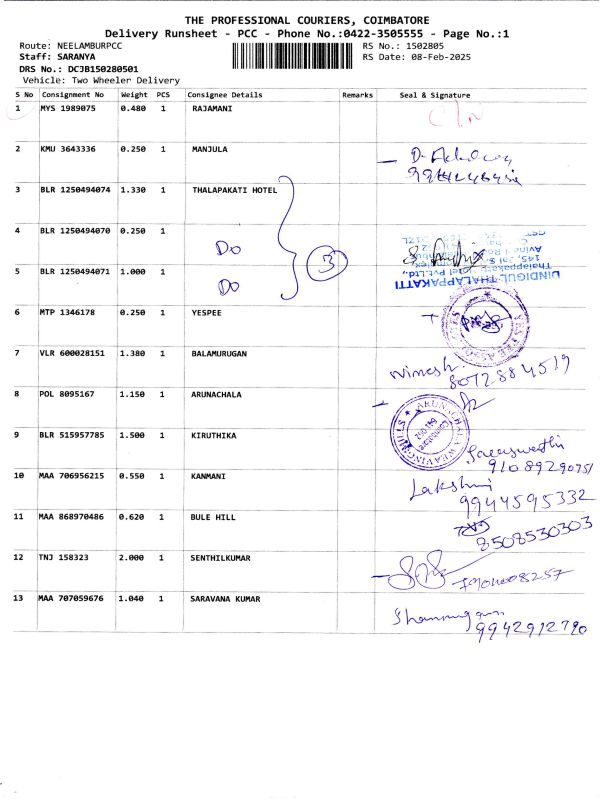 THE PROFESSIONAL COURIERS, COIMBATORE
Delivery Runsheet - PCC - Phone No.:0422-3505555 - Page No.:1
Route: NEELAMBURPCC RS No.: 1502805
Staff: SARANYA RS Date: 08-Feb-2025
DRS No.: DCJB150280501
Vehicle: Two Wheeler Delivery
S No Consignment No Weight PCS Consignee Details Remarks Seal & Signature
1 MYS 1989075 0.480 1 RAJAMANI
2 KMU 3643336 0.250 1 MANJULA
3 BLR 1250494074 1.330 1 THALAPAKATI HOTEL
4 BLR 1250494070 0.250 1 Do
3
5 BLR 1250494071 1.000 1 Do
DINDIGUL THALAPPAKATTI
6 MTP 1346178 0.250 1 YESPEE
7 VLR 600028151 1.380 1 BALAMURUGAN
8072884519
8 POL 8095167 1.150 1 ARUNACHALA
ARUNACHALA WEAVING MILLS
9 BLR 515957785 1.500 1 KIRUTHIKA
9108929075
10 MAA 706956215 0.550 1 KANMANI Lakshmi
9944595332
11 MAA 868970486 0.620 1 BULE HILL
8508530303
12 TNJ 158323 2.000 1 SENTHILKUMAR
13 MAA 707059676 1.040 1 SARAVANA KUMAR
9942912790